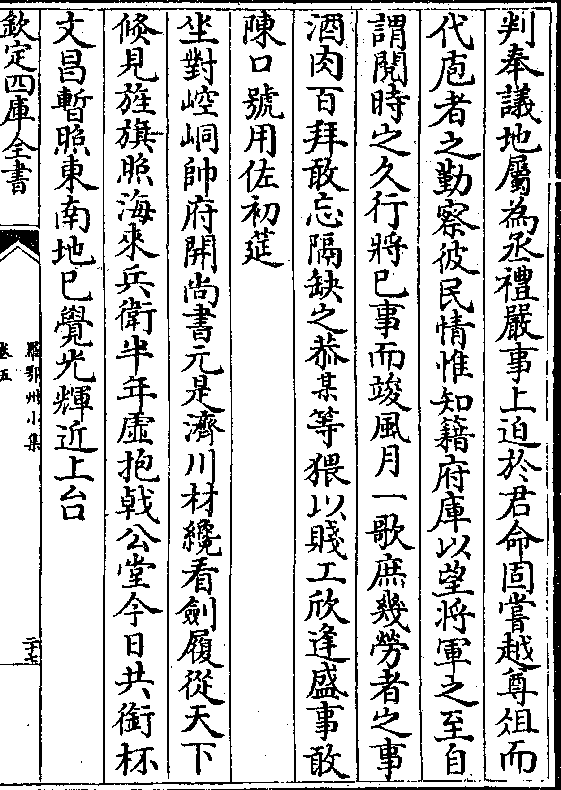 判奉議地屬為丞禮嚴事上迫於君命固嘗越尊俎而
代庖者之勤察彼民情惟知籍府庫以望將軍之至自
謂閱時之久行將已事而竣風月一歌庶幾勞者之事
酒肉百拜敢忘隔缺之恭某等猥以賤工欣逢盛事敢
陳口號用佐初莚
坐對崆峒帥府開尚書元是濟川材纔看劍履從天下
倐見旌旗照海來兵衛半年虛抱戟公堂今日共銜杯
文昌暫照東南地已覺光輝近上台
欽定四庫全書
羅鄂州小集
卷五
二十七